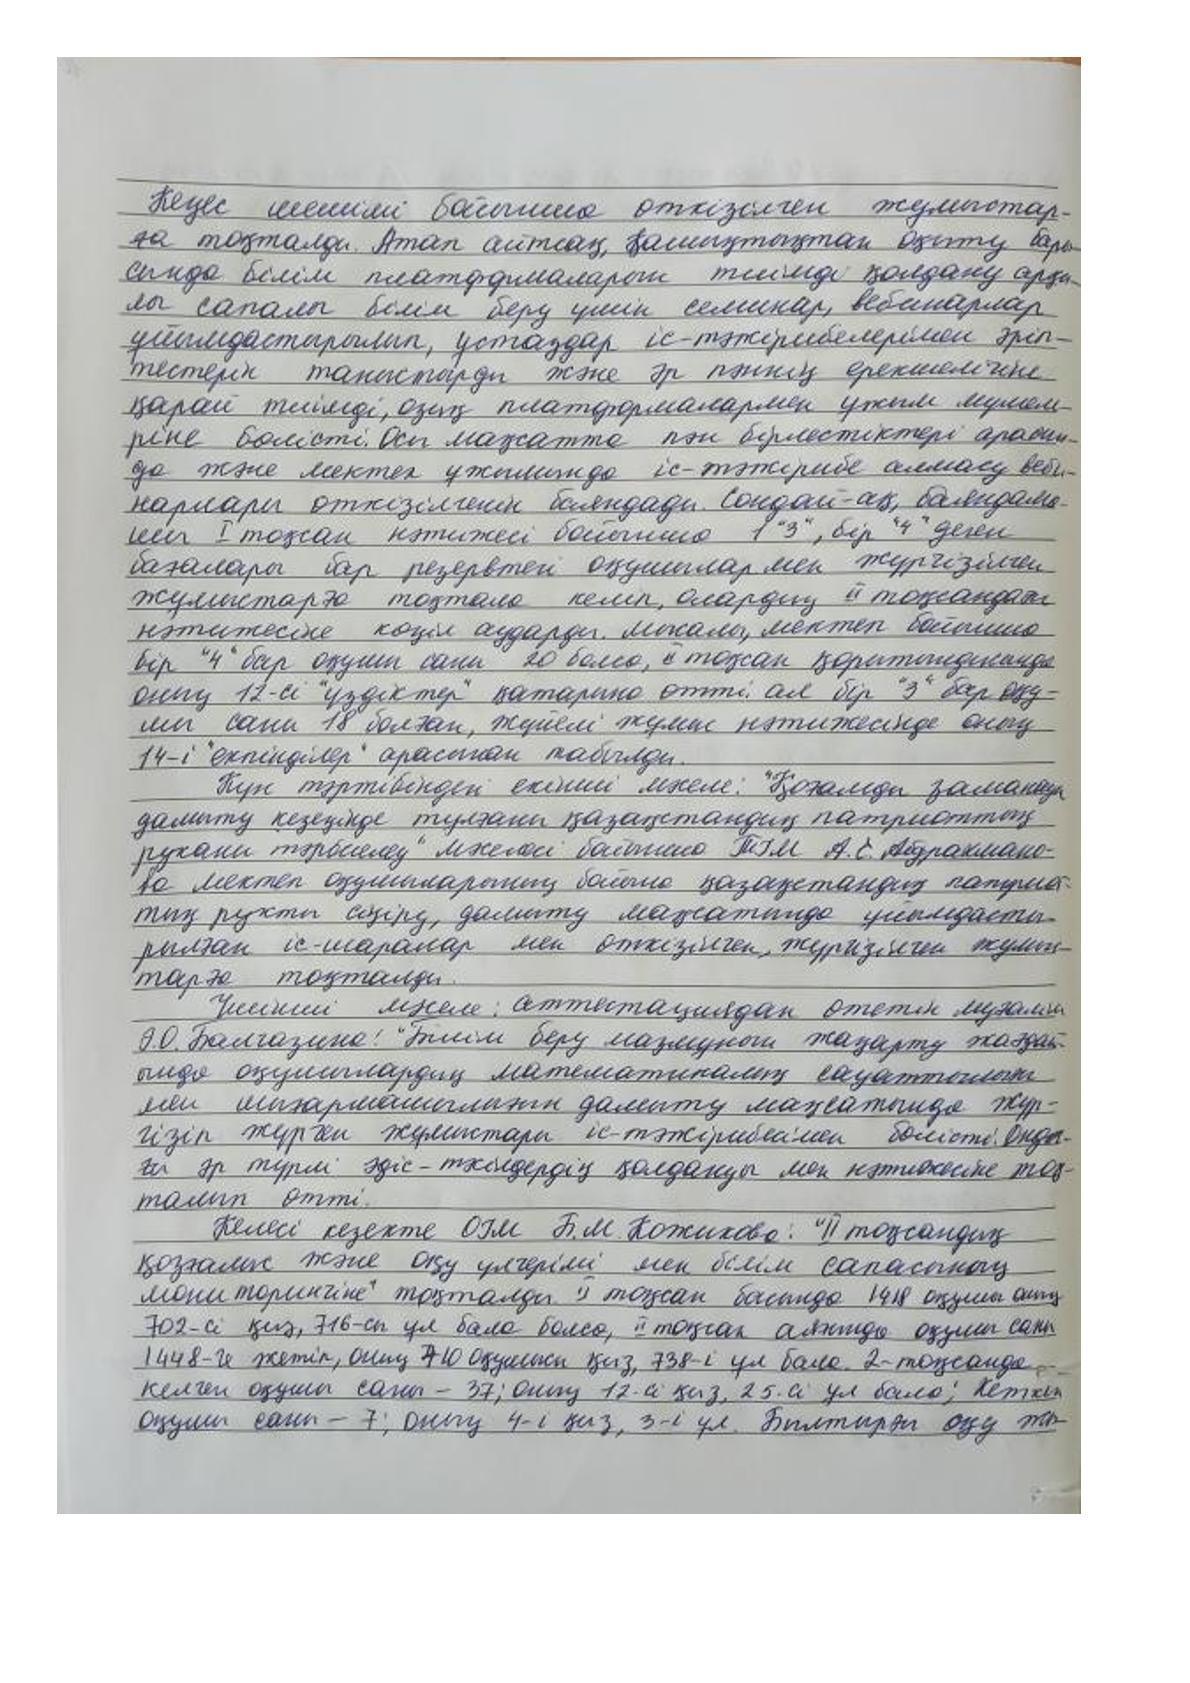 Кеңес шешімі бойынша өткізілген жұмыстар-
ға тоқталды. Атап айтсақ, қашықтықтан оқыту бары-
сында білім платформаларын тиімді қолдану арқы-
лы сапалы білім беру үшін семинар, вебинарлар
ұйымдастырылып, ұстаздар іс-тәжірибелерімен әріп-
тестерін таныстырды және әр пәннің ерекшелігіне
қарай тиімді, озық платформалармен ұжым мүшеле-
ріне бөлісті. Осы мақсатта пән бірлестіктері арасын-
да және мектеп ұжымында іс-тәжірибе алмасу веби-
нарлары өткізілгенін баяндады. Сондай-ақ, баяндама-
шы I тоқсан нәтижесі бойынша 1 "3", бір "4" деген
бағалары бар резервтегі оқушылармен жүргізілген
жұмыстарға тоқтала келіп, олардың II тоқсандағы
нәтижесіне көңіл аударды. Мысалы, мектеп бойынша
бір "4" бар оқушы саны 20 болса, II тоқсан қорытындысында
оның 12-сі "үздіктер" қатарына өтті. ал бір "3" бар оқу-
шы саны 18 болған, жүйелі жұмыс нәтижесінде оның
14-і "екпінділер" арасынан табылды.
Күн тәртібіндегі екінші мәселе: "Қоғамды заманауи
дамыту кезеңінде тұлғаны қазақстандық патриоттық
рухани тәрбиелеу" мәселесі бойынша ТІЖО А.С. Абдрахмано-
ва мектеп оқушыларының бойына қазақстандық патриот-
тық рухты сіңіру, дамыту мақсатында ұйымдасты-
рылған іс-шаралар мен өткізілген, жүргізілген жұмыс-
тарға тоқталды.
Үшінші мәселе: аттестациядан өтетін мұғалім
Э.О. Балгазина: "Білім беру мазмұнын жаңарту жағдай-
ында оқушылардың математикалық сауаттылығы
мен шығармашылығын дамыту мақсатында жүр-
гізіп жүрген жұмыстары іс-тәжірибесімен бөлісті. Онда-
ғы әр түрлі әдіс-тәсілдердің қолдануы мен нәтижесіне тоқ-
талып өтті.
Келесі кезекте ОІМ Б.М. Кожикова: "II тоқсандық
қозғалыс және оқу үлгерімі мен білім сапасының
мониторингіне" тоқталды. II тоқсан басында 1418 оқушы оның
702-сі қыз, 716-сы ұл бала болса, II тоқсан аяғында оқушы саны
1448-ге жетіп, оның 710 оқушысы қыз, 738-і ұл бала. 2-тоқсанда
келген оқушы саны – 37; оның 12-сі қыз, 25-сі ұл бала; Кеткен
оқушы саны – 7; оның 4-і қыз, 3-і ұл. Былтырғы оқу жы-